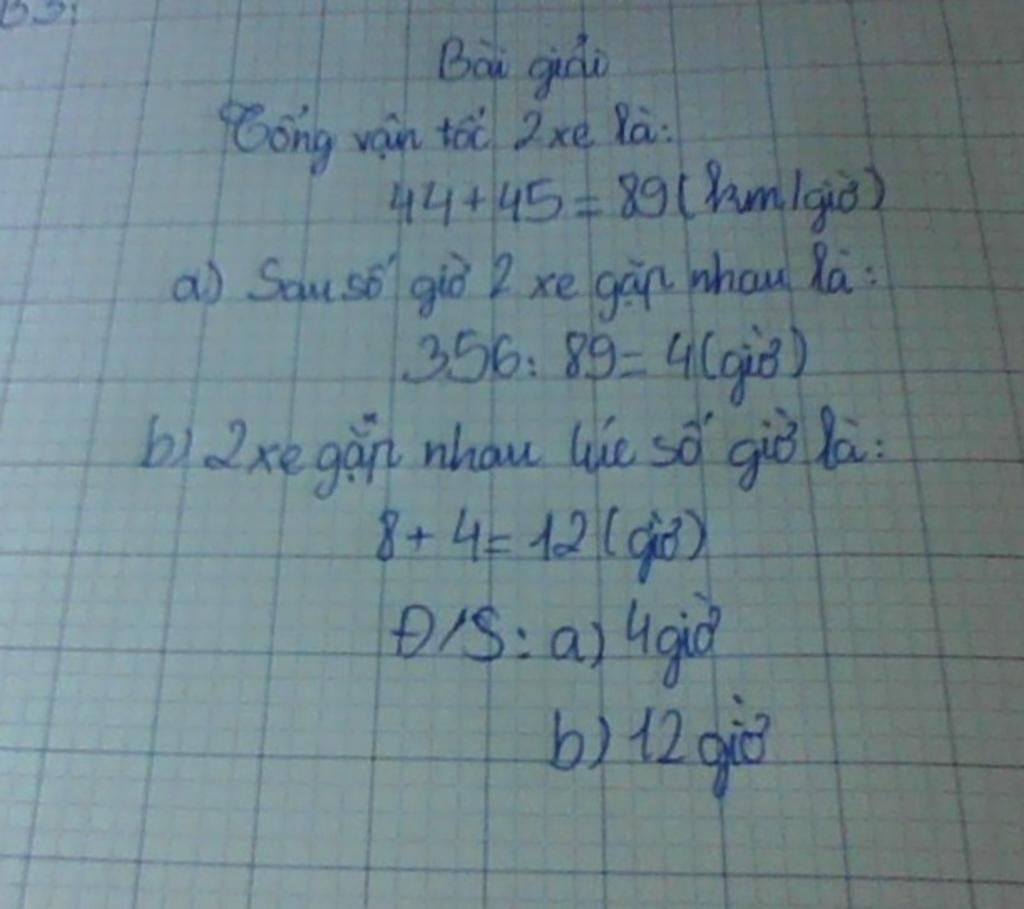 B3:
Bài giải
Tổng vận tốc 2 xe là:
44 + 45 = 89 (km/giờ)
a) Sau số giờ 2 xe gặp nhau là:
356 : 89 = 4 (giờ)
b) 2 xe gặp nhau lúc số giờ là:
8 + 4 = 12 (giờ)
Đ/S: a) 4 giờ
b) 12 giờ